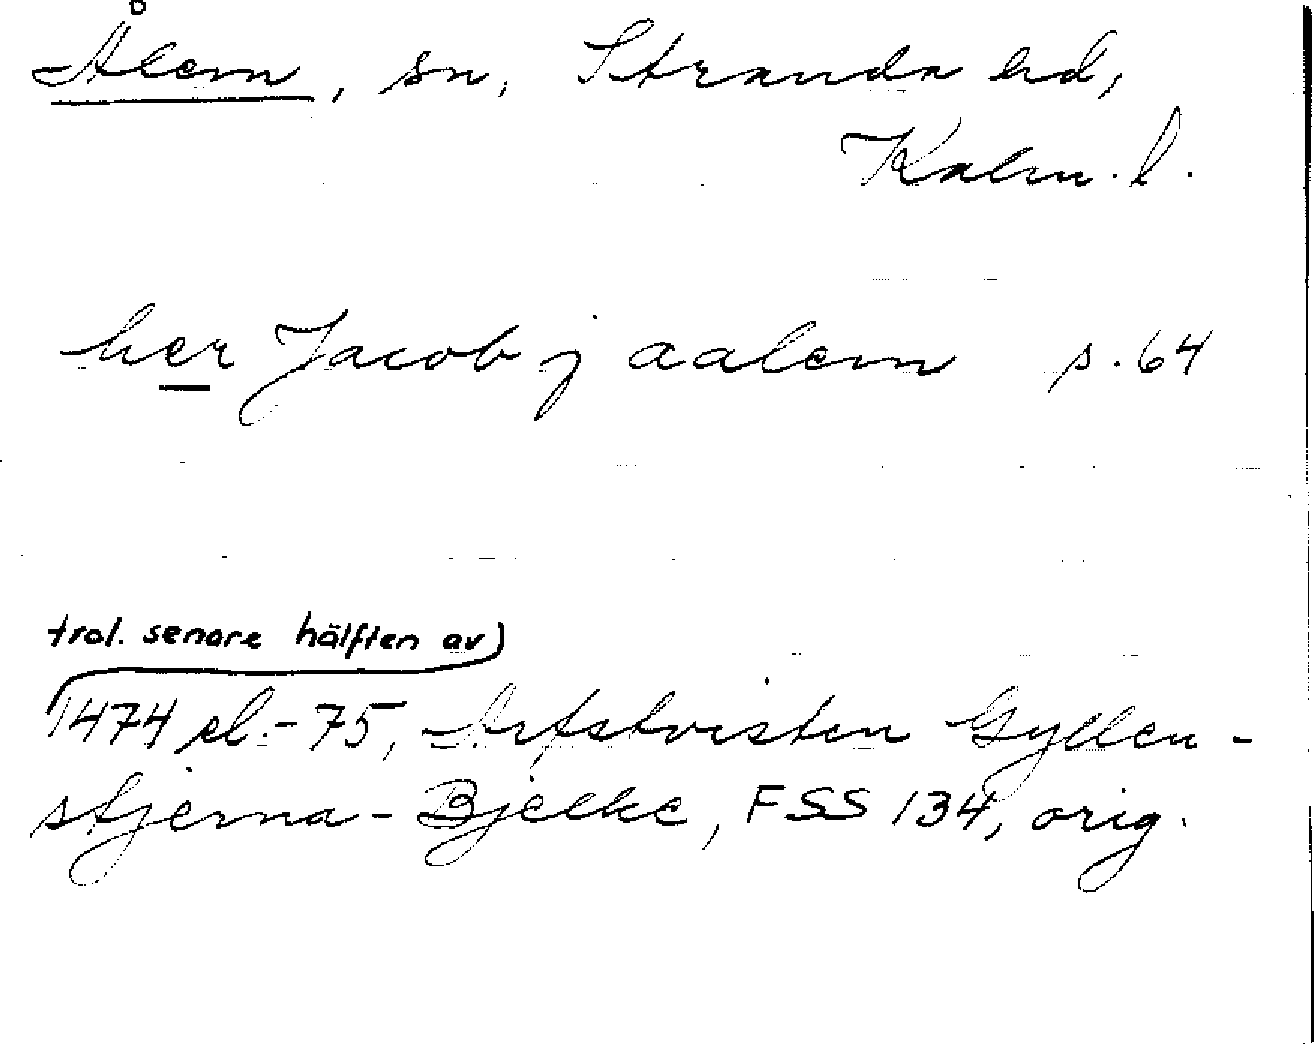 Ålem, sn, Stranda hd,
Kalm. l.
her Jacob j aalem s. 64
trol. senare hälften av
1474 el. -75, Arfstvisten Gyllen-
stjerna - Bjelke, FSS 134, orig.